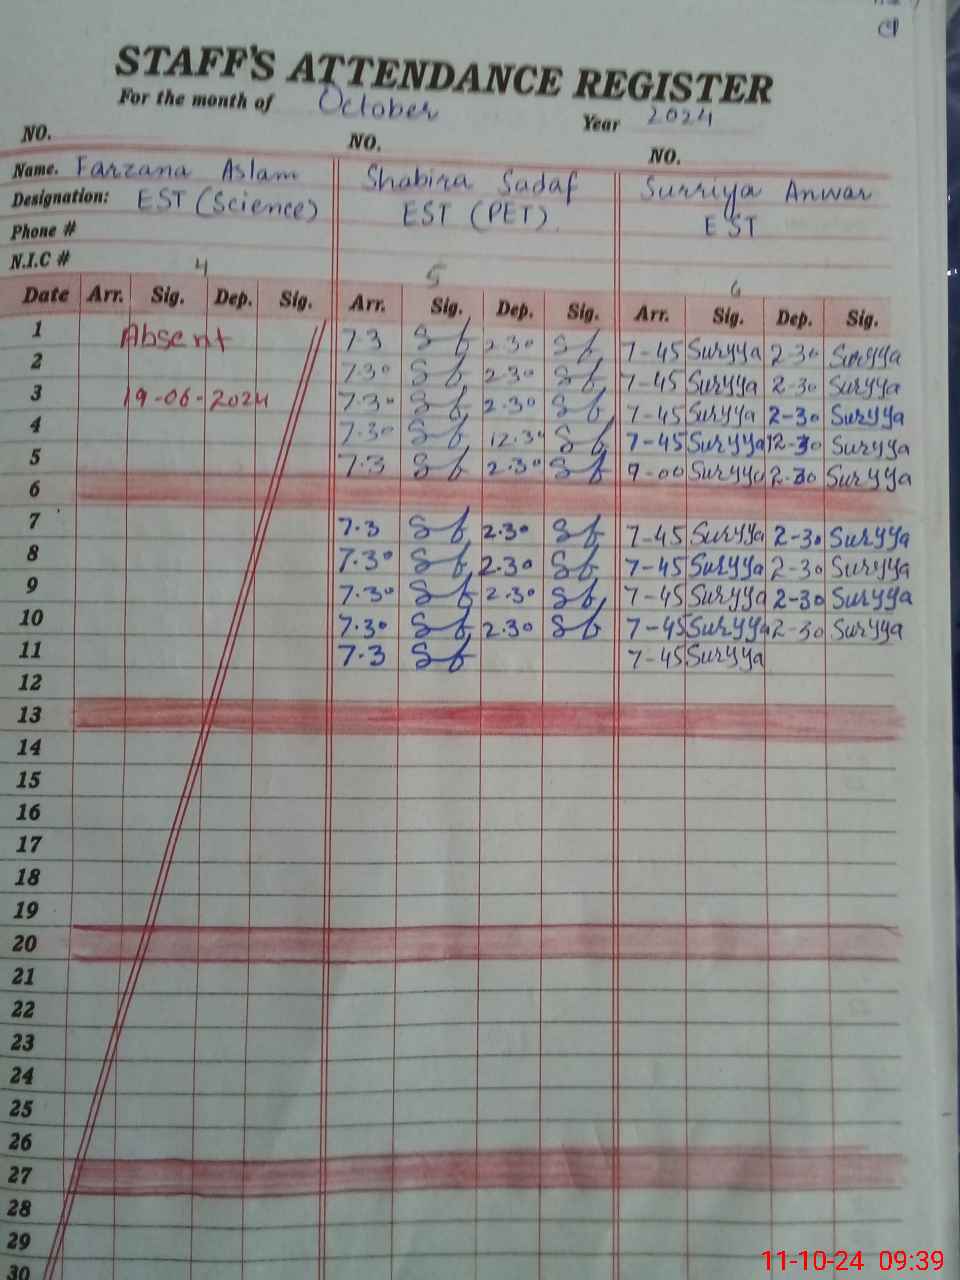 STAFF'S ATTENDANCE REGISTER
For the month of October Year 2024
NO. NO. NO.
Name. Farzana Aslam Shabira Sadaf Surriya Anwar
Designation: EST (Science) EST (PET). EST
Phone #
N.I.C # 4 5 6
Date Arr. Sig. Dep. Sig. Arr. Sig. Dep. Sig. Arr. Sig. Dep. Sig.
1 Absent 7.3 Sf 2.30 Sf 7-45 Suryya 2-30 Suryya
2 7.30 Sf 2.30 Sf 7-45 Suryya 2-30 Suryya
3 19-06-2024 7.30 Sf 2.30 Sf 7-45 Suryya 2-30 Suryya
4 7.30 Sf 12.30 Sf 7-45 Suryya 12-30 Suryya
5 7.3 Sf 2.30 Sf 9-00 Suryya 2-30 Suryya
6
7 7.3 Sf 2.30 Sf 7-45 Suryya 2-30 Suryya
8 7.30 Sf 2.30 Sf 7-45 Suryya 2-30 Suryya
9 7.30 Sf 2.30 Sf 7-45 Suryya 2-30 Suryya
10 7.30 Sf 2.30 Sf 7-45 Suryya 2-30 Suryya
11 7.3 Sf 7-45 Suryya
12
13
14
15
16
17
18
19
20
21
22
23
24
25
26
27
28
29
30
11-10-24 09:39